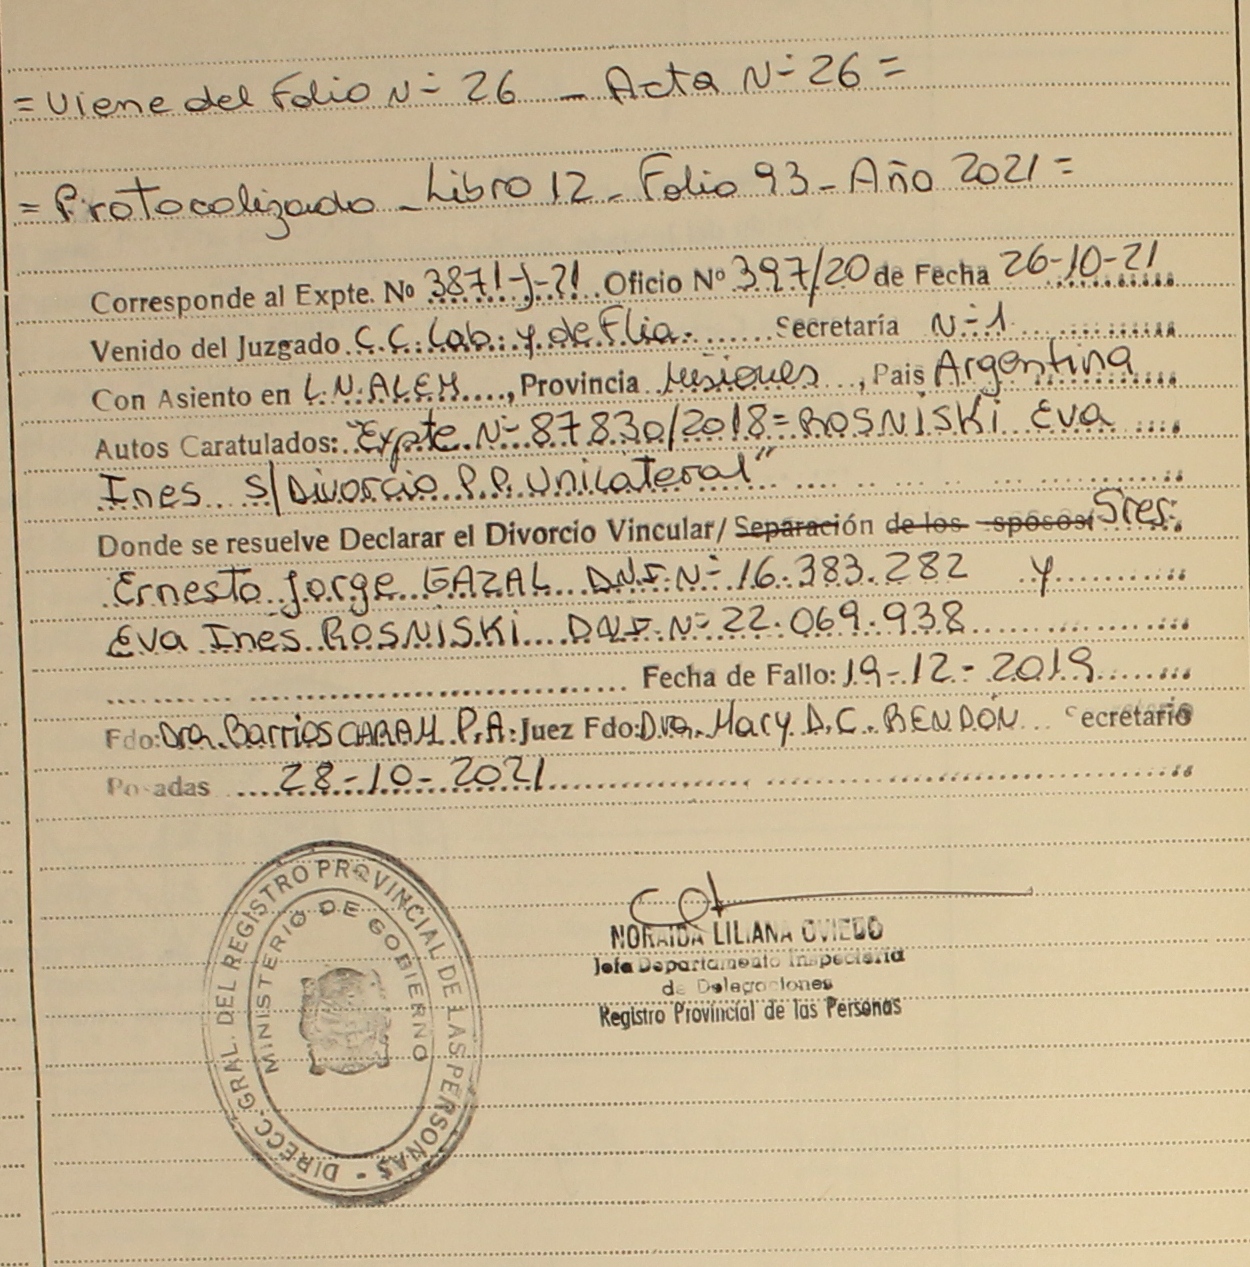 = Viene del Folio N° 26 - Acta N° 26 =
= Protocolizado - Libro 12 - Folio 93 - Año 2021 =
Corresponde al Expte. Nº 3871-J-21 Oficio Nº 397/20 de Fecha 26-10-21
Venido del Juzgado C.C. Lab. y de Flia. Secretaría N° 1
Con Asiento en L.N. ALEM, Provincia Misiones, Pais Argentina
Autos Caratulados: "Expte. N° 87830/2018 = ROSNISKI Eva
Ines S/Divorcio P.P. Unilateral"
Donde se resuelve Declarar el Divorcio Vincular/ Separación de los sposos Sres.
Ernesto Jorge GAZAL D.N.I. N° 16.383.282 y
Eva Ines ROSNISKI D.N.I. N° 22.069.938
Fecha de Fallo: 19-12-2019
Fdo: Dra. Barrios CARAM P.A: Juez Fdo: Dra. Mary D.C. RENDÓN Secretario
Posadas 28-10-2021
DIRECC. GRAL. DEL REGISTRO PROVINCIAL DE LAS PERSONAS -
MINISTERIO DE GOBIERNO
NORAIDA LILIANA OVIEDO
Jefa Departamento Inspectoria
de Delegaciones
Registro Provincial de las Personas